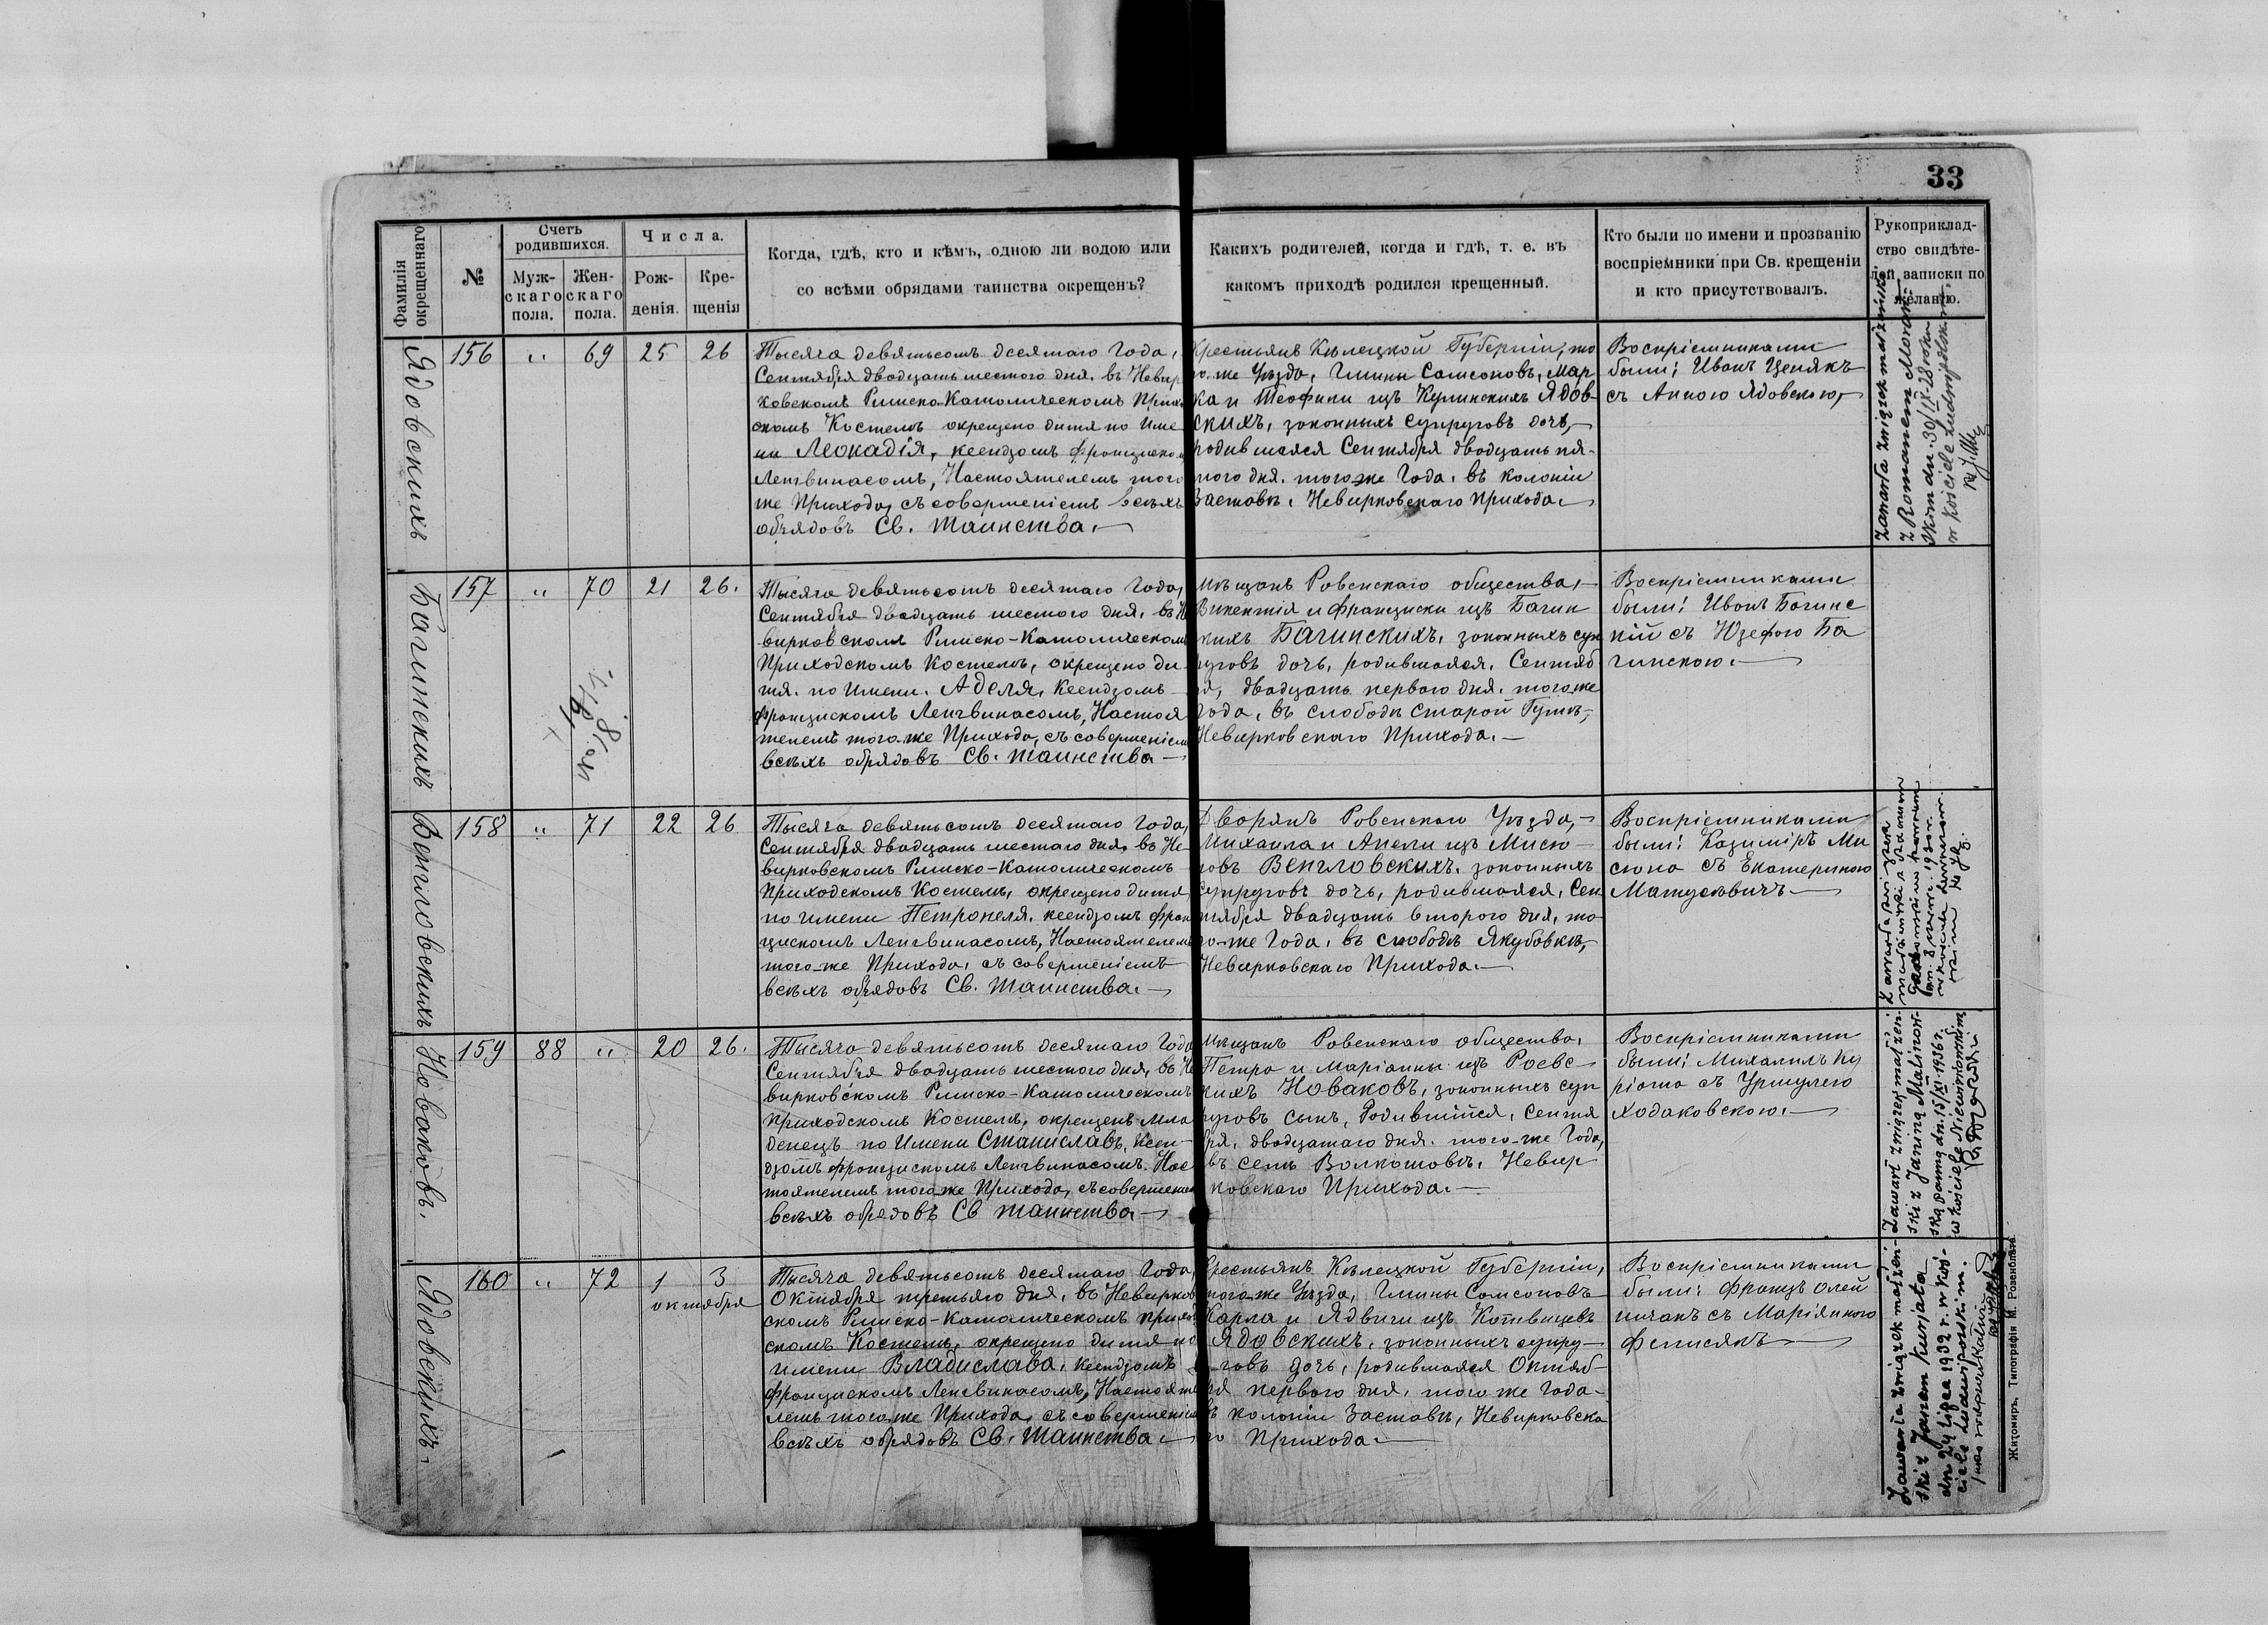 33
Фамилія
окрещеннаго
№
Счетъ
родившихся.
Муж-
скаго
пола.
Жен-
скаго
пола.
Числа.
Рож-
денія.
Кре-
щенія
Когда, гдѣ, кто и кѣмъ, одною ли водою или
со всѣми обрядами таинства окрещенъ?
Какихъ родителей, когда и гдѣ, т. е. въ
какомъ приходѣ родился крещенный.
Кто были по имени и прозванію
воспріемники при Св. крещеніи
и кто присутствовалъ.
Рукоприклад-
ство свидѣте-
лей, записки по
желанію.
Ядовскихъ
156 " 69 25 26
Тысяча девятьсотъ десятаго Года,
Сентября двадцать шестого дня, въ Невир
ковскомъ Римско-Католическомъ Прихо
скомъ Костелѣ окрещено дитя по Име
ни Леокадія, ксендзомъ Францискомъ
Ленгвинасомъ, Настоятелемъ того
же Прихода, съ совершеніемъ всѣхъ
обрядовъ Св. Таинства.
Крестьянъ Кѣлецкой Губерніи, то
го-же Уѣзда, Гмины Самсоновъ, Мар
ка и Теофили изъ Ядов-
скихъ, законныхъ супруговъ дочь,
родившаяся Сентября двадцать пя-
того дня, того-же Года, въ колоніи
Заставѣ, Невирковскаго Прихода.
Воспріемниками
были: Иванъ Ценякъ
съ Анною Ядовскою,
Zawarła związek małżeński
z Romanem
dn. 30/IX-28 roku
w kościele Ludwipolskim
Багинскихъ
157 " 70 21 26.
Тысяча девятьсотъ десятаго Года,
Сентября двадцать шестого дня, въ Не
вирковскомъ Римско-Католическомъ
Приходскомъ Костелѣ, окрещено ди-
тя по Имени Аделя, Ксендзомъ
Францискомъ Ленгвинасомъ, Настоя
телемъ того-же Прихода, съ совершеніемъ
всѣхъ обрядовъ Св. Таинства
Мѣщанъ Ровенскаго общества,
Викентія и Франциски изъ Багин
скихъ Багинскихъ, законныхъ суп
руговъ дочь, родившаяся, Сентяб
ря, двадцать первого дня, того-же
Года, въ слободѣ Старой Гутѣ,
Невирковскаго Прихода.
Воспріемниками
были: Иванъ Багинс
кій съ Юзефою Ба
гинскою.
Венгловскихъ
158 " 71 22 26
Тысяча девятьсотъ десятаго Года,
Сентября двадцать шестаго дня, въ Не-
вирковскомъ Римско-Католическомъ
Приходскомъ Костелѣ, окрещено дитя
по имени Петронеля, ксендзомъ Фран
цискомъ Ленгвинасомъ, Настоятелемъ
того-же Прихода, съ совершеніемъ
всѣхъ обрядовъ Св. Таинства.
Дворянъ Ровенскаго Уѣзда,
Михаила и Анели изъ Мисю
ровъ Венгловскихъ, законныхъ
супруговъ дочь, родившаяся, Сен
тября двадцать второго дня, то
го-же Года, въ слободѣ Якубовкѣ,
Невирковскаго Прихода.
Воспріемниками
были: Казимиръ Ми
сюра съ Екатериною
Матусевичъ
Новаковъ.
159 88 " 20 26.
Тысяча девятьсотъ десятаго Года
Сентября двадцать шестого дня, въ Не
вирковскомъ Римско-Католическомъ
Приходскомъ Костелѣ, окрещенъ мла
денецъ по Имени Станиславъ, ксен-
дзомъ Францискомъ Ленгвинасомъ, Нас
тоятелемъ того-же Прихода, съ совершеніе
всѣхъ обрядовъ Св Таинства
Мѣщанъ Ровенскаго общества,
Петра и Маріанны изъ Роевс
кихъ Новаковъ, законныхъ суп
руговъ сынъ, Родившійся, Сентя
бря, двадцатаго дня, того-же Года,
въ селѣ Волкошовѣ, Невир
ковскаго Прихода.
Воспріемниками
были: Михаилъ Ку
ріата съ Уршулею
Ходаковскою.
Zawarł związek małżeń-
ski z Janiną Malinow-
ską panną dn. 15/XI 1936 r.
w kościele Niewirkowskim
Ядовскихъ
160 " 72 1 3
октября
Тысяча девятьсотъ десятаго Года,
Октября третьяго дня, въ Невирков
скомъ Римско-Католическомъ Приход
скомъ Костелѣ, окрещено дитя по
имени Владислава, ксендзомъ
Францискомъ Ленгвинасомъ, Настояте
лемъ того-же Прихода, съ совершеніемъ
всѣхъ обрядовъ Св. Таинства.
Крестьянъ Кѣлецкой Губерніи,
того-же Уѣзда, Гмины Самсоновъ
Карла и Ядвиги изъ Котвицовъ
Ядовскихъ, законныхъ супру-
говъ дочь, родившаяся Октяб
ря первого дня, того же Года
въ колоніи Заставѣ, Невирковска
го Прихода.
Воспріемниками
были: Францъ Олей
ничакъ съ Маріянною
Фелисякъ
Zawarła związek małżeń-
ski z Janem Kurjatą
dn. 24 lipca 1932 r. w koś-
ciele Ludwipolskim.
Житомиръ, Типографія М. Розенблата